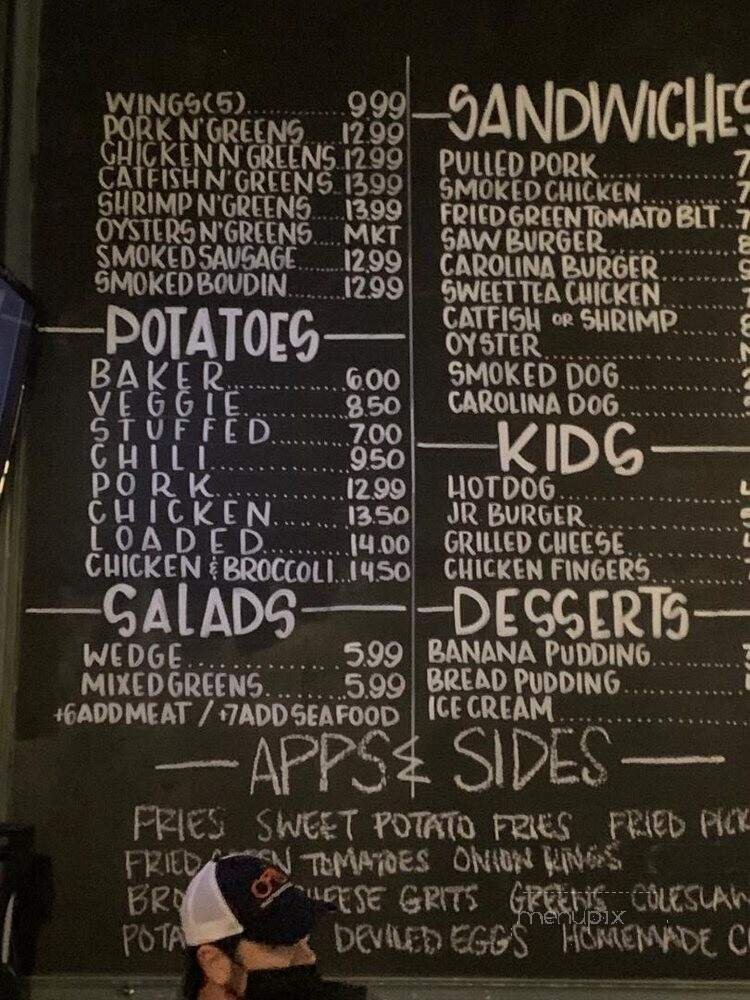 WINGS(5)........999
PORK N'GREENS....12.99
CHICKEN N'GREENS.12.99
CATFISH N'GREENS.13.99
SHRIMP N'GREENS....13.99
OYSTERS N'GREENS....MKT
SMOKED SAUSAGE.....12.99
SMOKED BOUDIN......12.99
POTATOES
BAKER..............6.00
VEGGIE............8.50
STUFFED.........7.00
CHILI..............9.50
PORK.............12.99
CHICKEN.......13.50
LOADED.........14.00
CHICKEN & BROCCOLI..14.50
SALADS
WEDGE..............5.99
MIXED GREENS.......5.99
+6 ADD MEAT / +7 ADD SEAFOOD
SANDWICHES
PULLED PORK............7
SMOKED CHICKEN.........7
FRIED GREEN TOMATO BLT..7
SAW BURGER
CAROLINA BURGER
SWEET TEA CHICKEN
CATFISH OR SHRIMP
OYSTER
SMOKED DOG
CAROLINA DOG
KIDS
HOTDOG
JR BURGER
GRILLED CHEESE
CHICKEN FINGERS
DESSERTS
BANANA PUDDING
BREAD PUDDING
ICE CREAM
APPS & SIDES
FRIES SWEET POTATO FRIES FRIED
FRIED TOMATOES ONION RINGS
CHEESE GRITS GREENS COLESLAW
DEVILED EGGS HOMEMADE
menupix